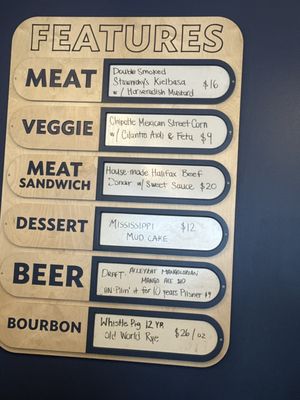 FEATURES
MEAT
Double Smoked
Stawnichy's Kielbasa
w/ Horseradish Mustard $16
VEGGIE
Chipotle Mexican Street Corn
w/ Cilantro Aioli & Feta $9
MEAT
SANDWICH
House-made Halifax Beef
Donair w/ Sweet Sauce $20
DESSERT
MISSISSIPPI
MUD CAKE
$12
BEER
DRAFT: ALLEYKAT
MANGO ALE $10
it for 10 years Pilsner $9
BOURBON
Whistle Pig 12 YR
Old World Rye
$26/oz